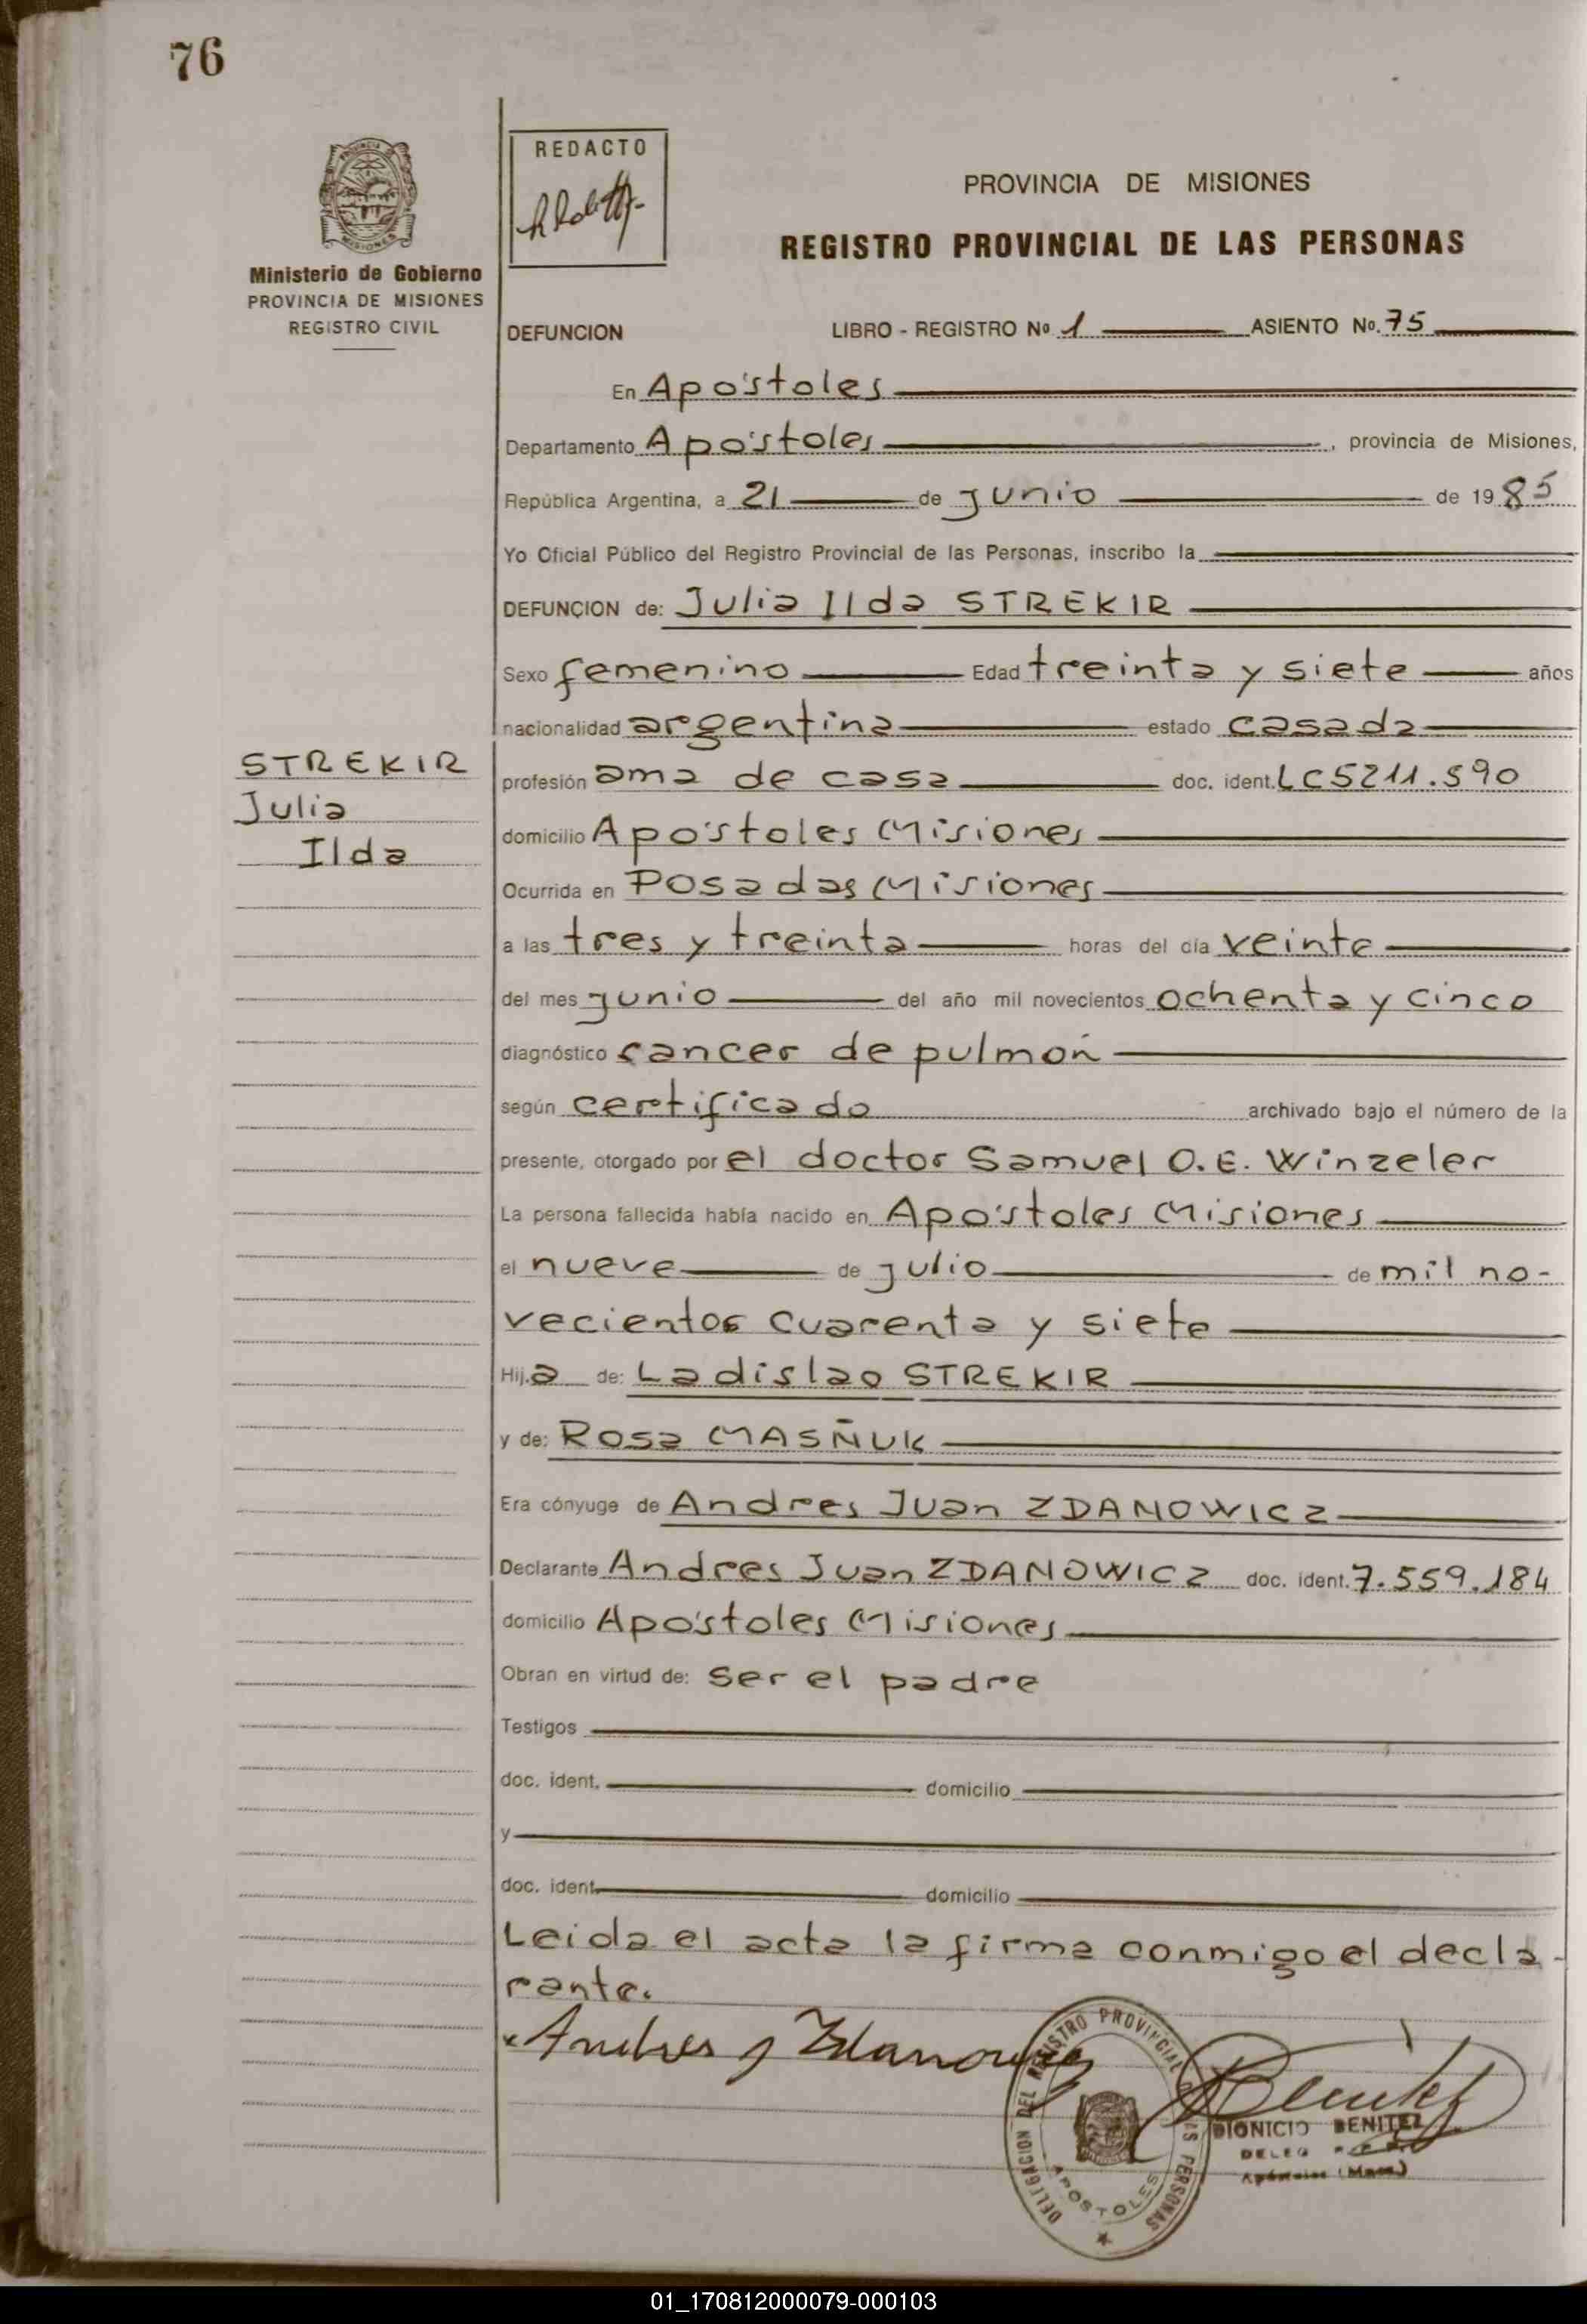 76
REDACTO
PROVINCIA DE MISIONES
REGISTRO PROVINCIAL DE LAS PERSONAS
Ministerio de Gobierno
PROVINCIA DE MISIONES
REGISTRO CIVIL
DEFUNCION LIBRO - REGISTRO No 1 ASIENTO No. 75
En Apóstoles
Departamento Apóstoles, provincia de Misiones,
República Argentina, a 21 de junio de 1985
Yo Oficial Público del Registro Provincial de las Personas, inscribo la
DEFUNCION de: Julia Ilda STREKIR
Sexo femenino Edad treinta y siete años
nacionalidad argentina estado casada
STREKIR
Julia
Ilda
profesión ama de casa doc. ident. LC5211.590
domicilio Apóstoles Misiones
Ocurrida en Posadas Misiones
a las tres y treinta horas del día veinte
del mes junio del año mil novecientos ochenta y cinco
diagnóstico cancer de pulmón
según certificado archivado bajo el número de la
presente, otorgado por el doctor Samuel O.E. Winzeler
La persona fallecida había nacido en Apóstoles Misiones
el nueve de julio de mil no-
vecientos cuarenta y siete
Hij.a de: Ladislao STREKIR
y de: Rosa MASÑUK
Era cónyuge de Andres Juan ZDANOWICZ
Declarante Andres Juan ZDANOWICZ doc. ident. 7.559.184
domicilio Apóstoles Misiones
Obran en virtud de: ser el padre
Testigos
doc. ident. domicilio
y
doc. ident. domicilio
Leida el acta la firma conmigo el decla-
rante.
Andres J Zdanowicz
DELEGACION DEL REGISTRO PROVINCIAL DE LAS PERSONAS
APOSTOLES
Benitez
DIONICIO BENITEZ
DELEG
Apóstoles (Mnes.)
01_170812000079-000103